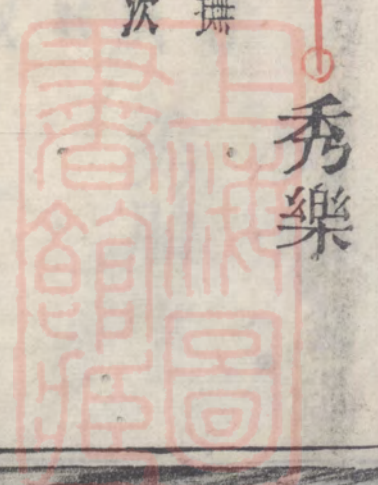 秀樂
無
次
上海圖
書館藏